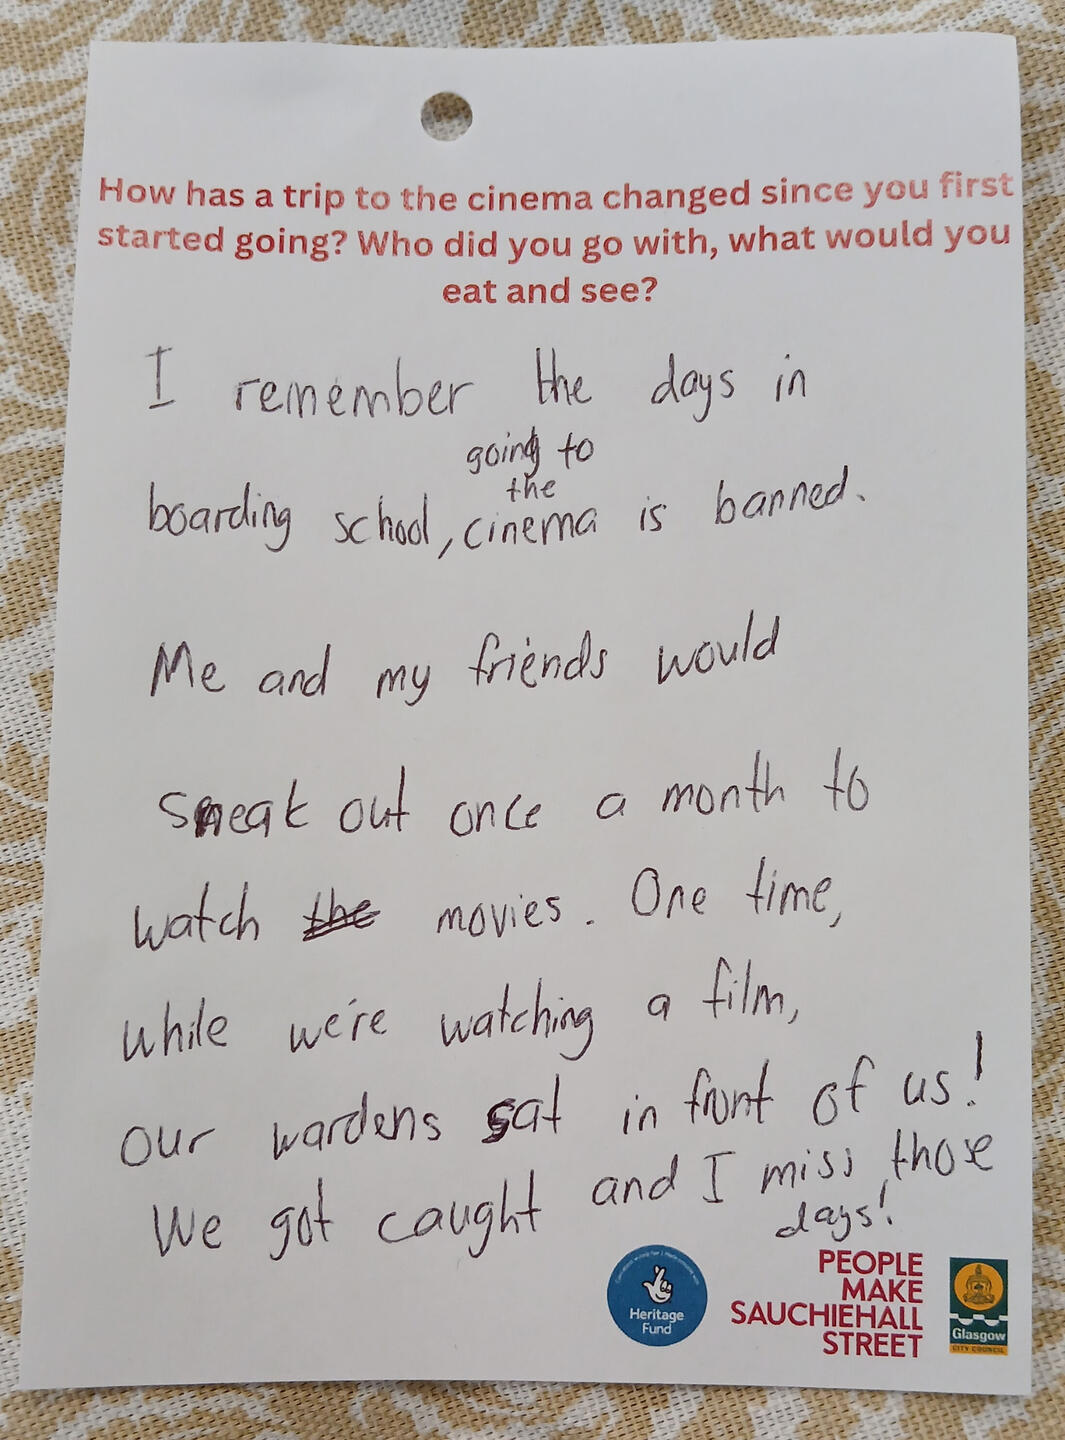 How has a trip to the cinema changed since you first
started going? Who did you go with, what would you
eat and see?
I remember the days in
going to
the
boarding school, cinema is banned.
Me and my friends would
sneak out once a month to
watch the movies. One time,
while we're watching a film,
our wardens sat in front of us!
We got caught and I miss those
days!
Heritage
Fund
PEOPLE
MAKE
SAUCHIEHALL
STREET
Glasgow
CITY COUNCIL